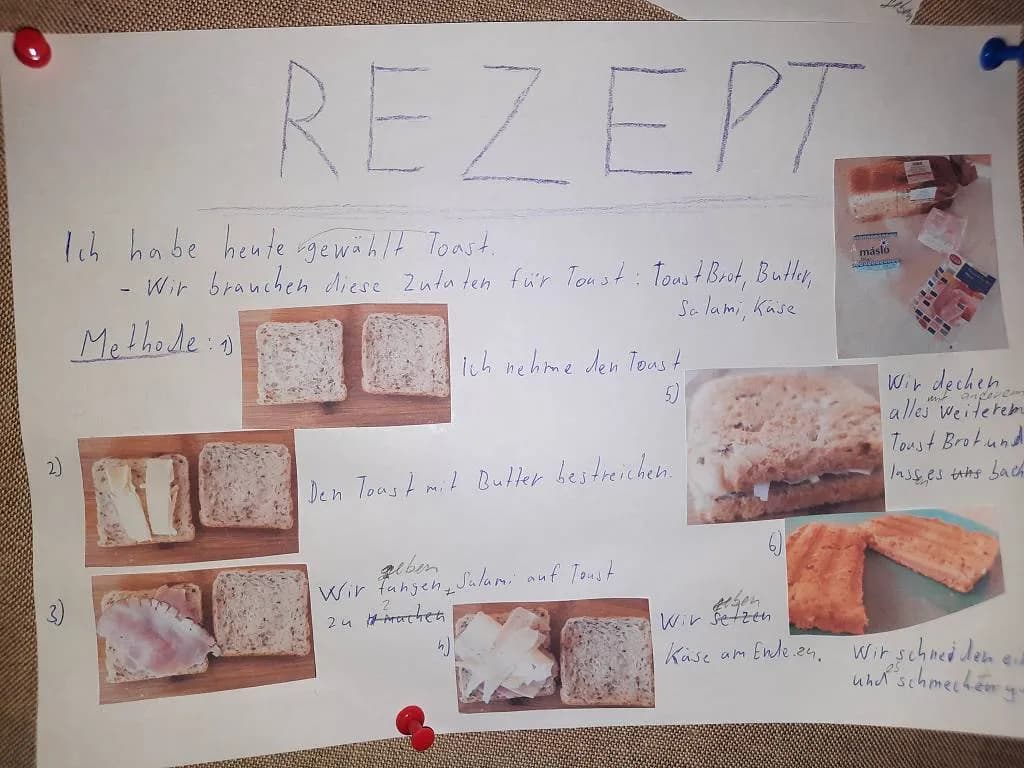 REZEPT
Ich habe heute gewählt Toast.
- Wir brauchen diese Zutaten für Toast: Toast Brot, Butter,
Salami, Käse
máslo
Methode: 1)
Ich nehme den Toast
2)
Den Toast mit Butter bestreichen.
3)
geben
Wir fangen Salami auf Toast
zu machen
4)
geben
Wir setzen
Käse am Ende zu.
5)
Wir decken
mit anderem
alles weiterem
Toast Brot und
lassen es uns
6)
Wir schneiden
und es schmecken